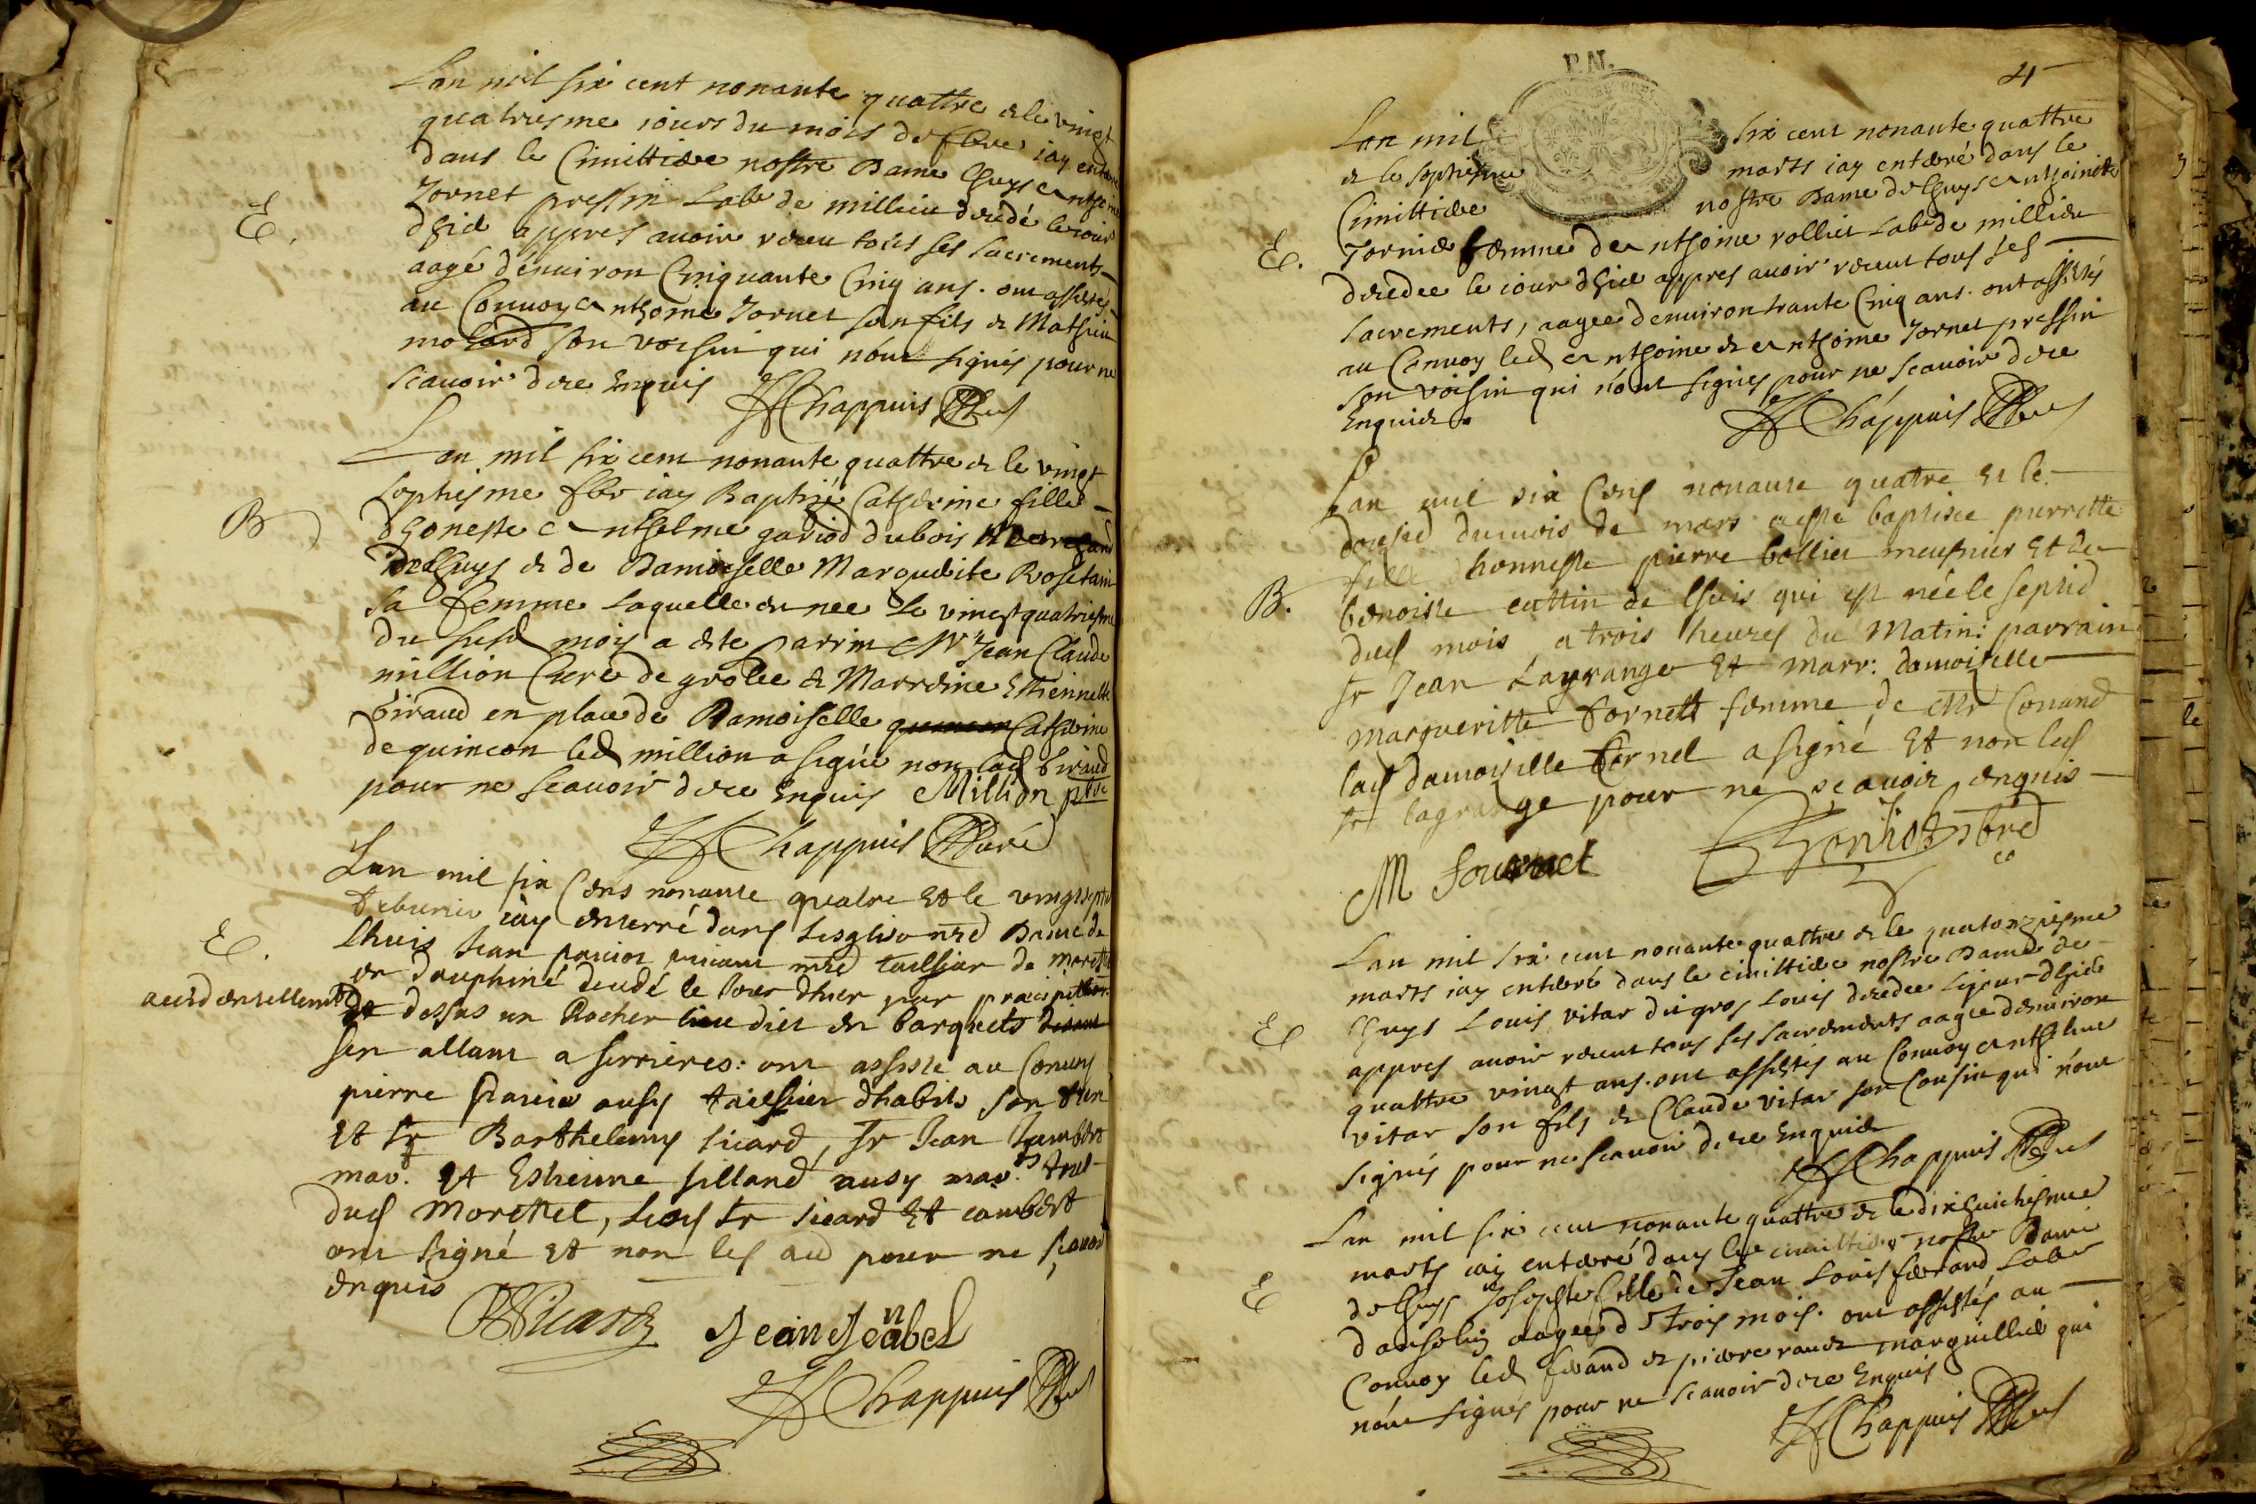 Lan mil six cent nonante quattre & le vingt
quatriesme jours du mois de febvr jay enterré
dans le Cimittiere nostre Dame lhuys Anthoine
Jornet pressin Labr de millieu decedé le jour
dhier appres avoir receu tous ses sacrements
E.
aagé denviron Cinquante Cinq ans. ont assisté
au Convoy Anthoine Jornet son fils & Mathieu
molard son voisin qui nont signés pour ne
scavoir de ce Enquis JChappuis Curé
Lan mil six cent nonante quattre & le vingt
septiesme febr jay Baptizé Catherine fille
B
dhoneste Anthelme gariod dubois
de lhuys & de Damoiselle Marguerite Rosetain
sa femme laquelle est nee le vingt quatriesme
du susd mois a esté parrin Mr Jean Claude
million Curé de grolee & Marreine Estiennette
Biraud en place de Damoiselle Catherine
de quincon led million a signé non lad Biraud
pour ne scavoir de ce Enquis Million pbtre
JChappuis Curé
Lan mil six Cens nonante quatre Et le vingt sept
febvrier jay enterré dans Lesglise nre Dame de
E.
Lhuis Jean pavior vivant mre tailheur de morestel
en dauphiné decedé le jour dhier par precipitation
accidentellement
de dessus un Rocher lieu dict en barquets
sen allant a serrieres: ont assisté au Convoy
pierre pavior ausy tailheur dhabits son
Et Sr Barthelemy sicard, Sr Jean Jambert
mar. Et Estienne silland ausy mar.
dud Morestel, Lesd Sr sicard Et Jambert
ont signé Et non les au pour ne scavoir
enquis
BSicard Jean Jambel
JChappuis Curé
P.N.
4
Lan mil six cent nonante quattre
& le septiesme marts jay enterré dans le
Cimittiere nostre Dame de lhuys Anthoinette
E.
Jornier femme de Anthoine rollier Labr de millieu
decedee le jour dhier appres avoir receu tous ses
sacrements, aagee denviron trante Cinq ans. ont assistés
au Convoy led Anthoine & Anthoine Jornet pressin
son voisin qui nont signés pour ne scavoir de ce
Enquis. JChappuis Curé
Lan mil six Cens nonante quatre Et le
douzie dumois de mars a esté baptisée pierrette
fille dhonneste pierre bollier meusnier Et de
B.
benoiste cuttin de Lhuis qui est née le septie
dud mois a trois heures du Matin: parrain
Sr Jean Lagrange Et marr: damoiselle
margueritte Fornet femme de Mr Conand
lad damoiselle Fornet a signé Et non led
Sr lagrange pour ne scavoir enquis
M Fournet
Lan mil six cent nonante quattre & le quatorziesme
marts jay enterré dans le cimittiere nostre Dame de
E
lhuys Louis vitar du gros Louis decedee le jour dhier
appres avoir receu tous ses sacrements aagee denviron
quattre vingt ans. ont assistés au Convoy Anthelme
vitar son fils & Claude vitar son Cousin qui nont
signés pour ne scavoir de ce Enquis
JChappuis Curé
Lan mil six cent nonante quattre & le dixhuictiesme
marts jay enterré dans le cimittiere nostre Dame
E
de lhuys Josephte fille de Jean Louis ferrand Labr
danselin aagee de trois mois. ont assistés au
Convoy led ferrand & pierre marguillier qui
nont signés pour ne scavoir de ce Enquis
JChappuis Curé